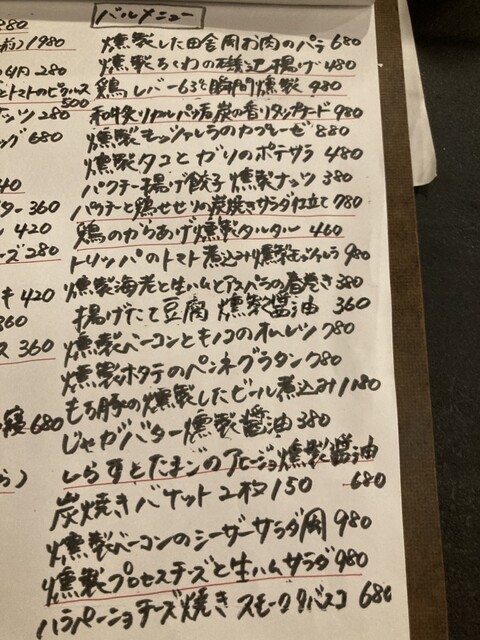 バルメニュー
燻製した田舎風お肉のパテ 680
燻製ちくわの磯辺揚げ 480
鶏レバー63℃瞬間燻製 980
和牛炙りカルパッチョ炭の香りタップナード 980
燻製モッツァレラのカプレーゼ 880
燻製タコとガリのポテサラ 480
パクチー揚げ餃子 燻製ナッツ 380
パクチーと鶏せせりの炭焼きサラダ仕立て 780
鶏のからあげ 燻製タルタル 460
トリッパのトマト煮込み 燻製モッツァレラ 980
燻製海老と生ハムとアスパラの春巻き 380
揚げたて豆腐 燻製醤油 360
燻製ベーコンとキノコのオムレツ 780
燻製ホタテのペンネグラタン 780
もち豚の燻製したビール煮込み 1180
じゃがバター 燻製醤油 380
しらすとたまごのアヒージョ燻製醤油
680
炭焼きバケット 2枚 150
燻製ベーコンのシーザーサラダ風 980
燻製プロセスチーズと生ハムサラダ 980
ハラペーニョチーズ焼き スモークタバスコ 680
880
1980
280
とトマトのピクルス
500
ナッツ 280
680
360
420
280
420
360
360
680